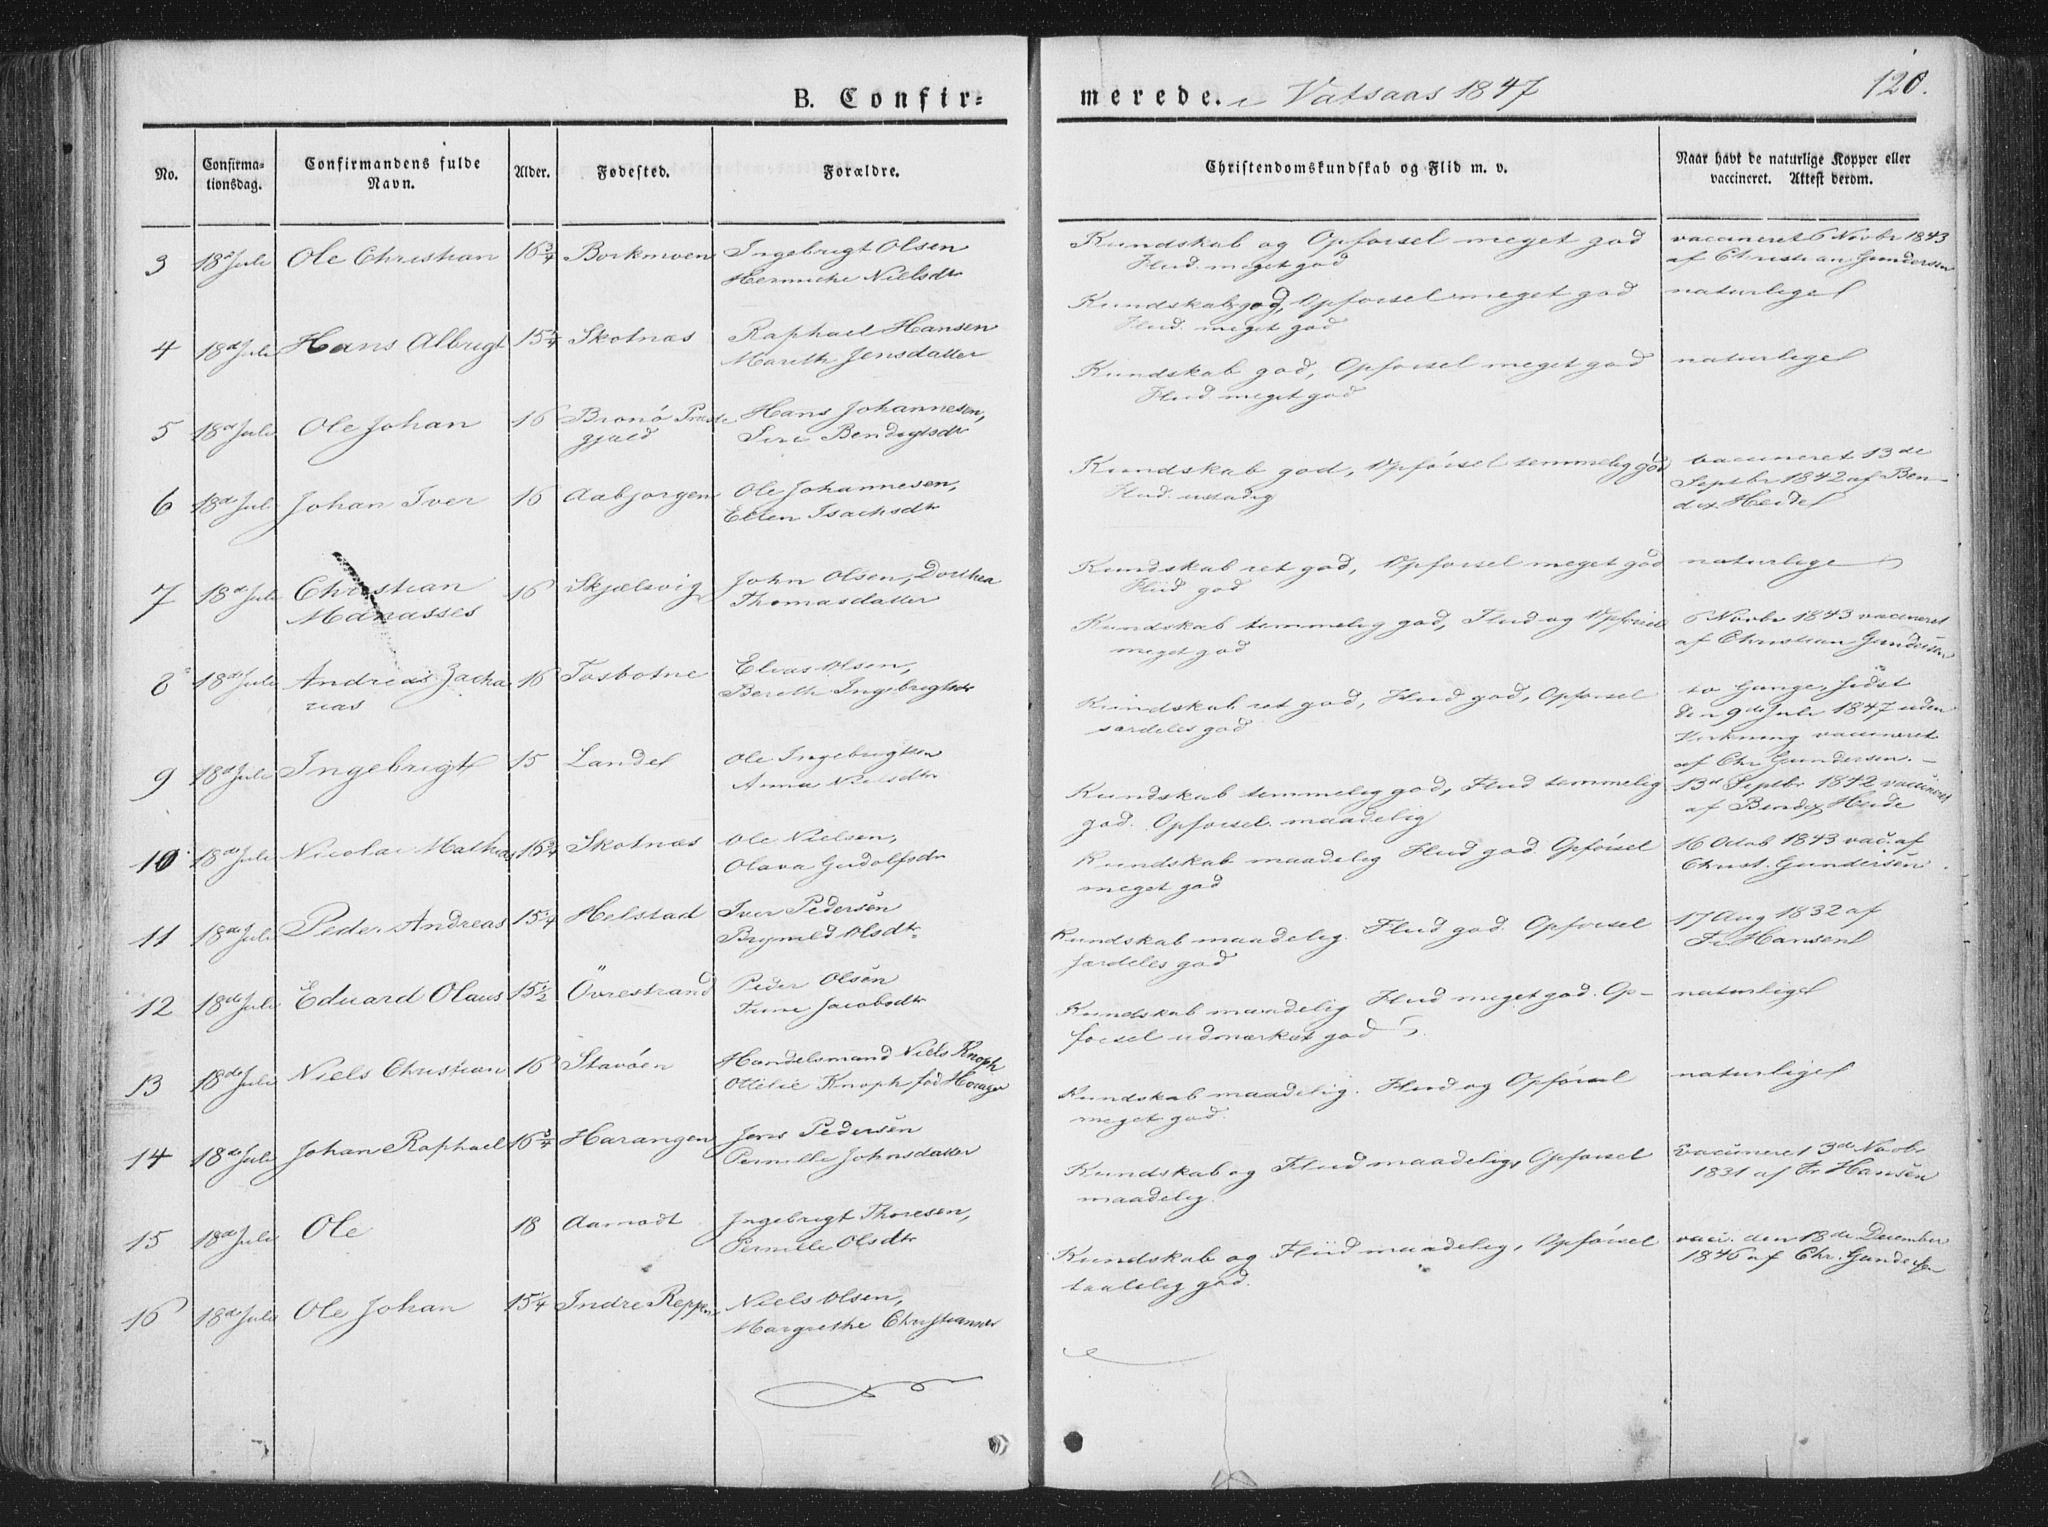 B. Confir=
merede. i Vatsaas 1847
120.
No.
Confirma-
tionsdag.
Confirmandens fulde
Navn.
Alder.
Fødested.
Forældre.
Christendomskundskab og Flid m. v.
Naar havt de naturlige Kopper eller
vaccineret. Attest derom.
3 18de Juli Ole Christian 16 3/4 Borkmoen Ingebrigt Olsen
Nielsdtr
Kundskab og Opførsel meget god
Flid meget god
vaccineret 6 Novbr 1843
af Christian Gundersen
4 18de Juli Hans Albrigt 15 1/4 Skotnæs Raphael Hansen
Mareth Jensdatter
Kundskab god, Opførsel meget god
Flid meget god
naturlige
5 18de Juli Ole Johan 16 Brønø Præste
gjæld
Hans Johannesen,
Bendigtsdtr
Kundskab god, Opførsel meget god
Flid meget god
naturlige
6 18de Juli Johan Iver 16 Aabjørgen Ole Johannesen,
Ellen Isachsdtr
Kundskab god, Opførsel temmelig god
Flid ustadig
vaccineret 13de
Septbr 1842 af Ben-
dix Heide
7 18de Juli Christian
Manasses
16 Skjælsvig John Olsen, Dorthea
Thomasdatter
Kundskab ret god, Opførsel meget god
Flid god
naturlige
8 18de Juli Andreas Zacha
rias
16 Tosbotne Elias Olsen,
Bereth Ingebrigtsdtr
Kundskab temmelig god, Flid og Opførsel
meget god
6 Novbr 1843 vaccineret
af Christian Gundersen
9 18de Juli Ingebrigt 15 Lande Ole Ingebrigtsen
Anna Nielsdtr
Kundskab ret god, Flid god, Opførsel
særdeles god
to Gange, sidst
den 9de Juli 1847 uden
Virkning vaccineret
af Chr Gundersen.
10 18de Juli Nicolai Mathias 16 3/4 Skotnæs Ole Nielsen,
Olava Gudolfsdtr
Kundskab temmelig god, Flid temmelig
god. Opførsel maadelig
13de Septbr 1842 vaccineret
af Bendix Heide
11 18de Juli Peder Andreas 15 1/4 Helstad Iver Pedersen
Brynild Olsdtr
Kundskab maadelig Flid god Opførsel
meget god
16 Octob 1843 vac. af
Christ. Gundersen
12 18de Juli Eduard Olaus 15 1/2 Øvrestrand Peder Olsen
Jacobsdtr
Kundskab maadelig. Flid god. Opførsel
særdeles god
17 Aug 1832 af
Fr. Hansen
13 18de Juli Niels Christian 16 Stavøen Handelsmand Niels Knoph
Ottilie Knoph fød
Kundskab maadelig Flid meget god. Op-
førsel udmærket god
naturlige
14 18de Juli Johan Raphael 16 3/4 Harangen Jens Pedersen
Pernille Johnsdatter
Kundskab maadelig. Flid og Opførsel
meget god.
naturlige
15 18de Juli Ole 18 Aamodt Ingebrigt Thoresen,
Pernille Olsdtr
Kundskab og Flid maadelig, Opførsel
maadelig.
vaccineret 3de Novbr
1831 af Fr Hansen
16 18de Juli Ole Johan 15 1/4 Indre Reppen Niels Olsen,
Margrethe
Kundskab og Fliid maadelig, Opførsel
taalelig god.
vacc. den 18de December
1846 af Chr. Gundersen